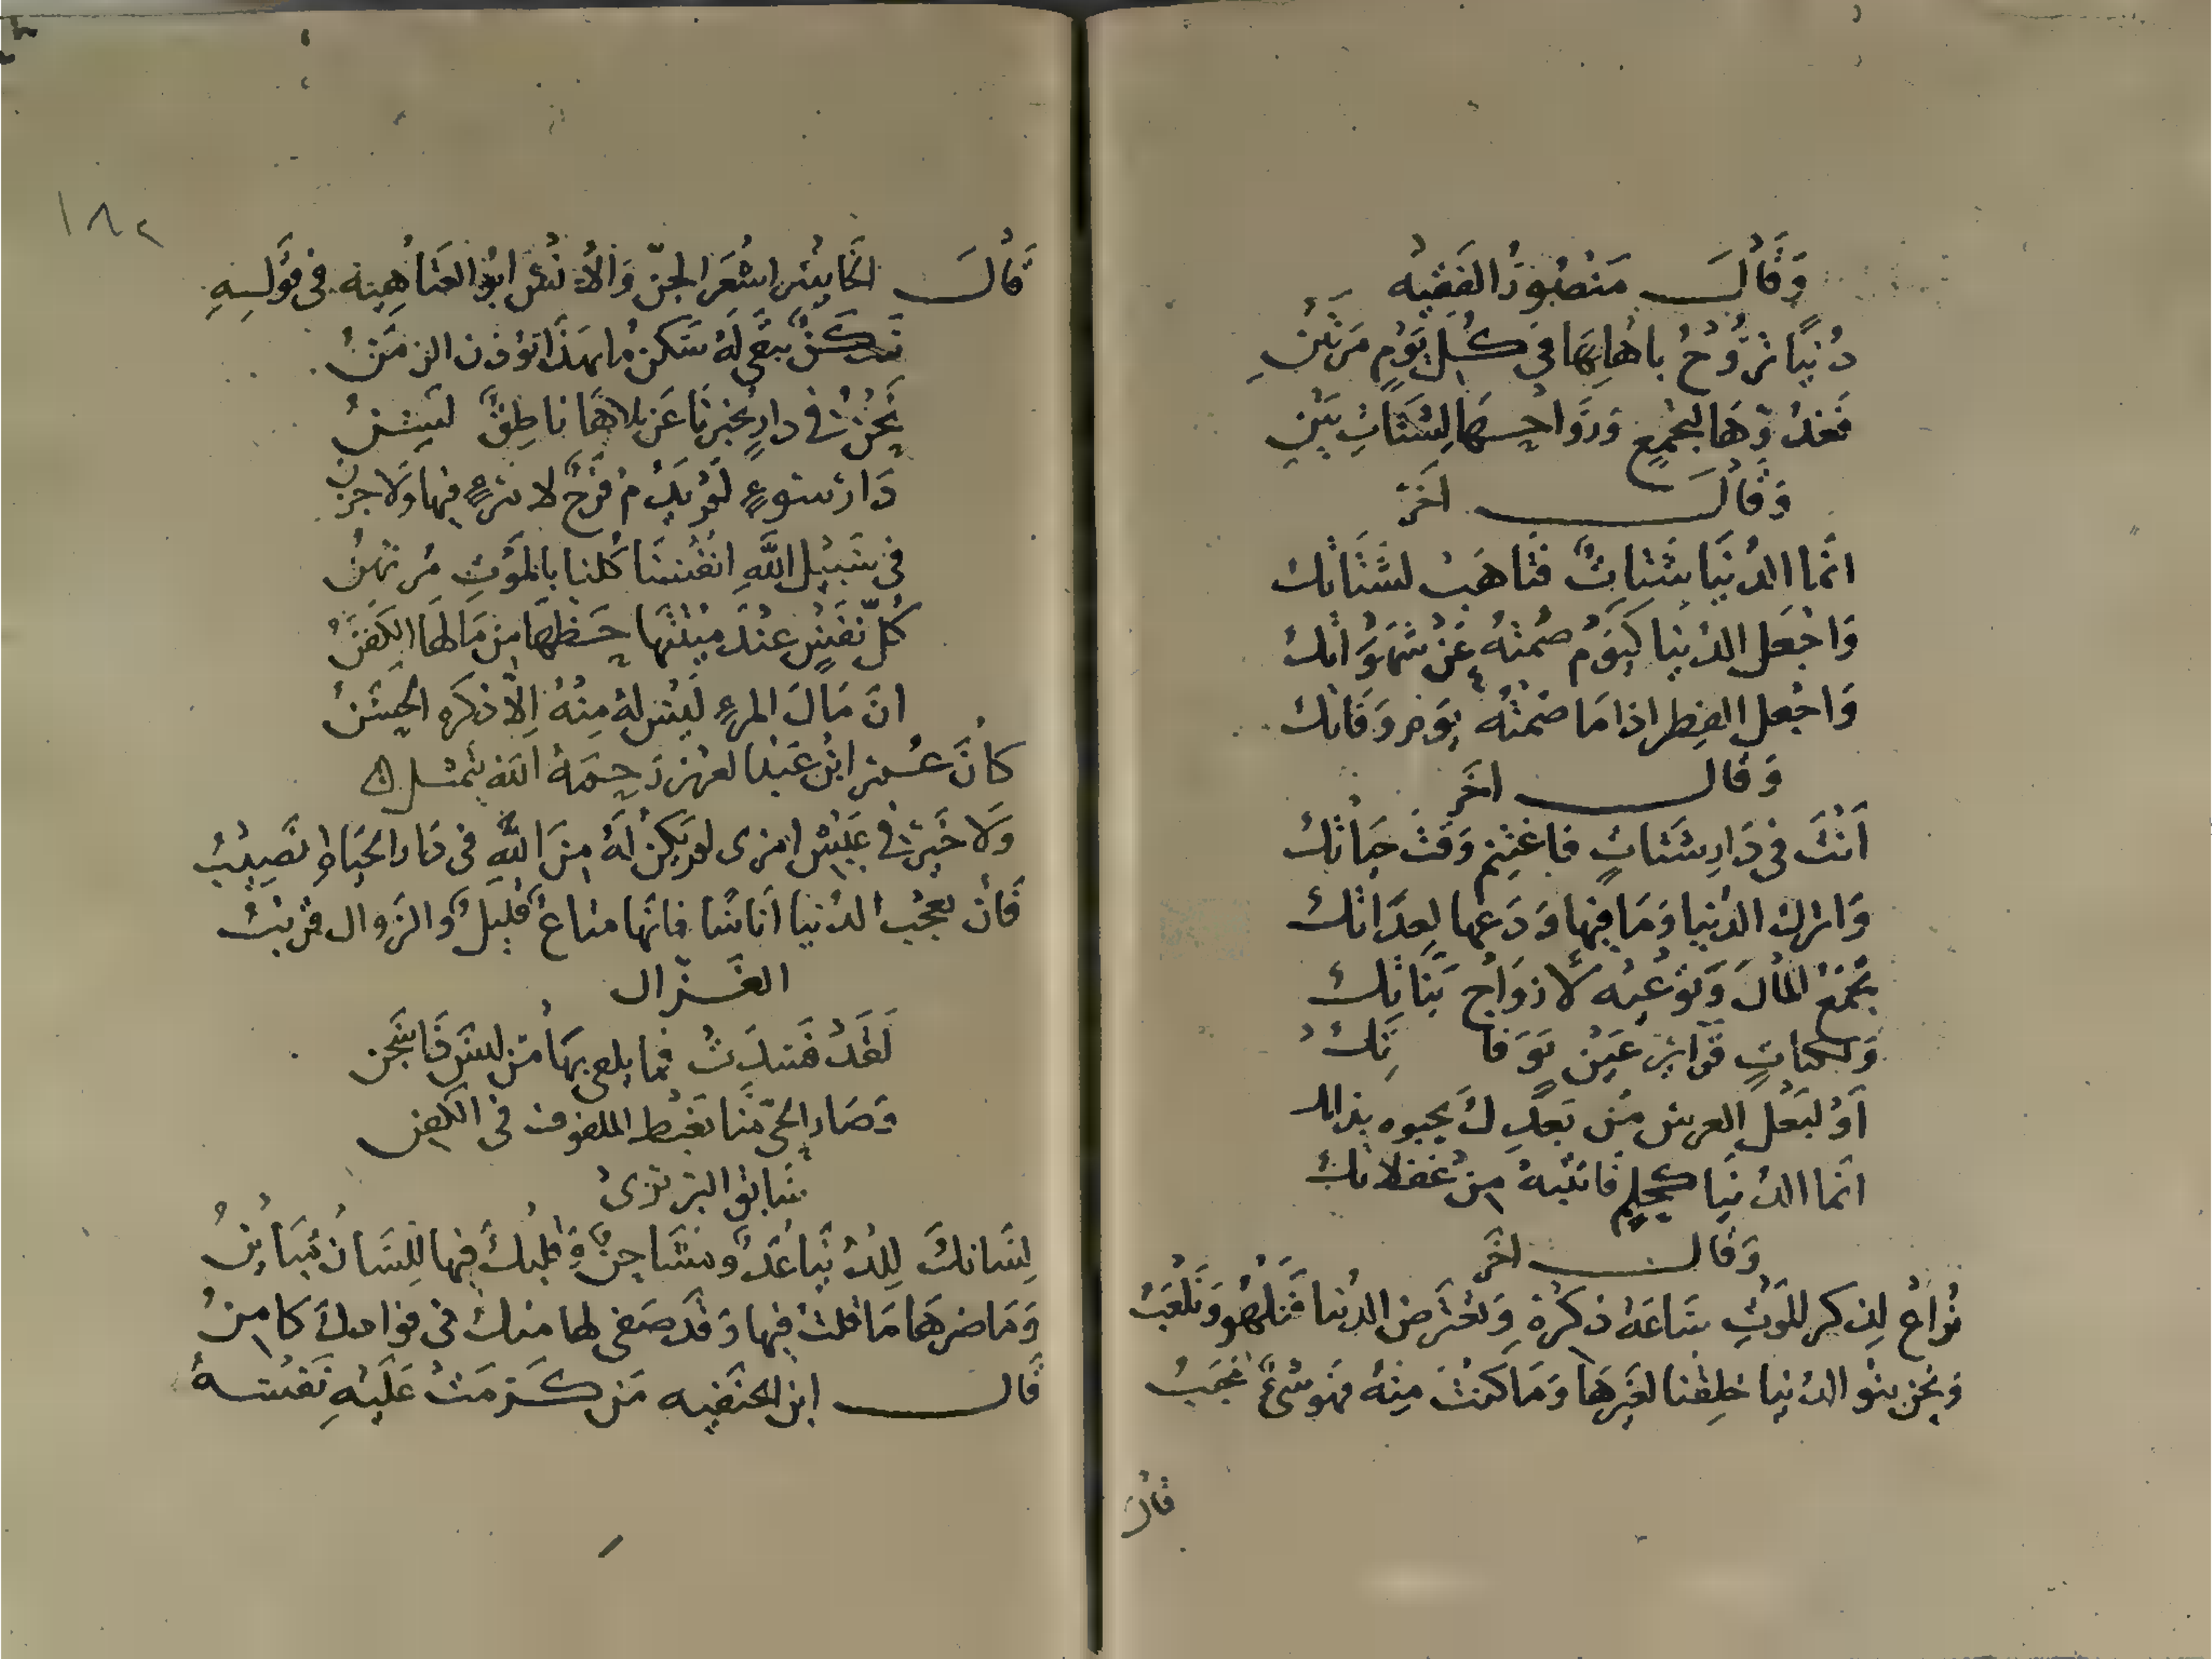 وَقَالَ مَنْصُورُ الفَقِيْه
دُنْيَا تَرُوْحُ بِاهْلِهَا فِي كُلِّ يَوْمٍ مَرَّتَيْنِ
فَغدُوّهَا لِتَجَمُّعٍ وَرَوَاحِهَا لِشَتَاتِ بَيْنِ
وَقَالَ اخَر
انّما الدُنيَا شَتَاتٌ فَتَاهَبْ لشَتَاتك
وَاجْعَل الدُنيا كَيَوْمٍ صُمْتَهُ عَنْ شَهَوَاتك
وَاجْعَل الفِطر اذا مَا صُمْتَهُ يَوْم وَفَاتك
وَقال اخَر
اَنْتَ فى دَارِ شَتاتٍ فاغْتَنِمْ وَقْتَ حيَاتكْ
وَاترك الدُنيا وَمَا فيها وَدَعها لِعدَاتكْ
تجْمَعُ المَالَ وَتوْعيْه لأزوَاج بَنَاتِكْ
وَ قَوَايِر عَيْن بوَفَا تِكْ
اَوْ لبَعْل العرس مَن بَعدِكَ يحبوه بذلك
انّما الدُنيَا كحُلمٍ فَانتَبِهْ مِنْ غَفلاتكْ
وَقال اخَر
نُراعُ لِذكر المَوْتِ سَاعَة ذكرهِ وَتعْتَرضُ الدُنيا فَنَلهُو وَنَلْعَبُ
وَنحْن بنو الدُنيا خلِقْنا لغَيْرهَا وَمَا كنْتَ مِنْهُ فهَو شئٌ مُحبّبُ
قال
١٨٢
قَالَ الجَاحظ اشعَر الجنّ وَالأنْس ابوُ العَتَاهِية فى قوْلِهِ
سَكَنٌ يَبْقَى لَهُ سَكنُ مَا بهَذَا يُؤذِن الزمَنُ
نَحْنُ فى دارٍ يُخبرنَا عَن بلاهَا نَاطِقٌ لَسِنُ
دَار سَوءٍ لَمْ يَدُمْ فَرَحٌ لامرءٍ فيها وَلا حزن
فى سَبيْل اللَّهِ انْفُسُنَا كُلنا بالمَوْتِ مُرتَهَنُ
كُلّ نَفْسٍ عنْدَ مِيْتَتِهَا حَظّهَا مِن مَالهَا الكَفَنُ
انّ مَالَ المرءِ لَيْسَ لهُ مِنْهُ اِلّا ذكره الحَسَنُ
كَانَ عُمَر ابْن عَبْد العزيز رَحِمَهُ الله يتمثل
وَلا خَيْرَ فى عَيْشِ امرئ لم يَكنْ لَهُ مِنَ اللّهِ فى دَار الحيَاة نَصِيْبُ
فَان تعجبْ الدُنيا انَاسًا فانّها متاعٌ قَلِيلٌ وَالزوال قرَيبُ
الغَزّال
لَقَدْ فسَدَتْ فما يلقى بهَا مَن لَيسَ
وَصَار الحيّ منّا يَغبط الملفوف فى الكفن
سَابق البَرْبَرى
لِسَانكَ لِلدُنيَا عَدُوٌ مشَاحِنٌ وَقلبكَ فيها لِلِسَانِ مُبَايِنُ
وَمَا ضرهَا مَا قلتَ فيها وَقَد صَفى لها منكَ فى فؤادك كامِنُ
قَالَ ابن الحنَفيه مَن كَرُمَتْ عَلَيْهِ نَفْسُهُ